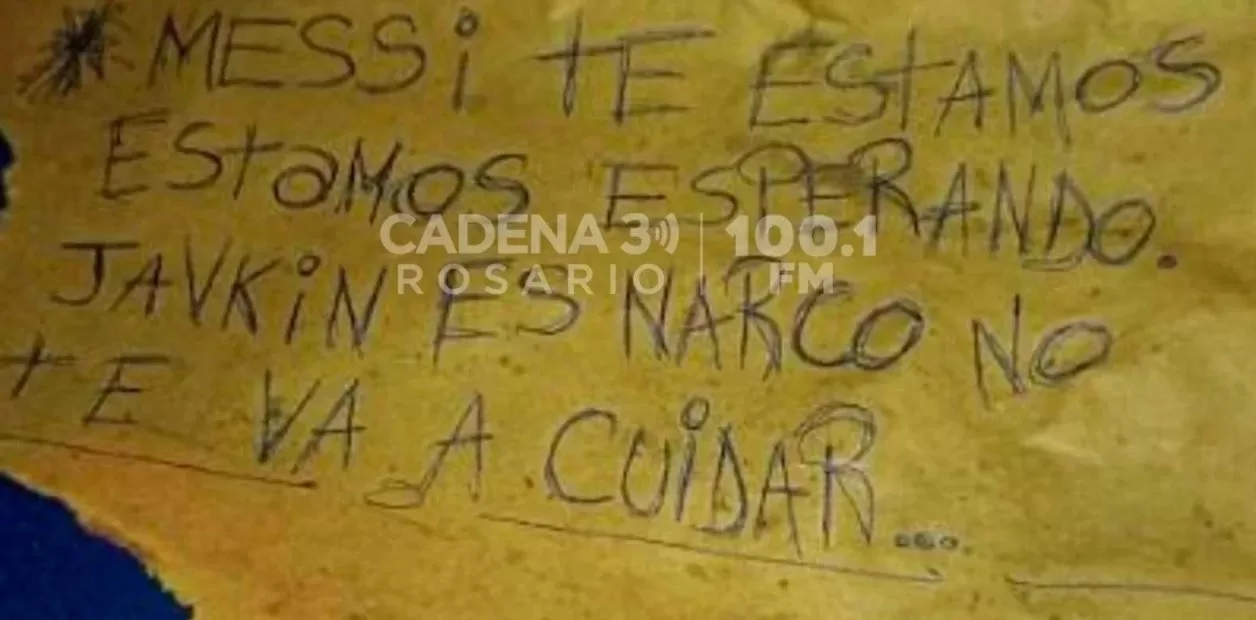 *MESSi TE ESTAMOS
ESTaMOS ESPERANDO.
JAVKiN ES NARCO NO
TE VA A CUiDAR....
CADENA 3 100.1
ROSARIO FM